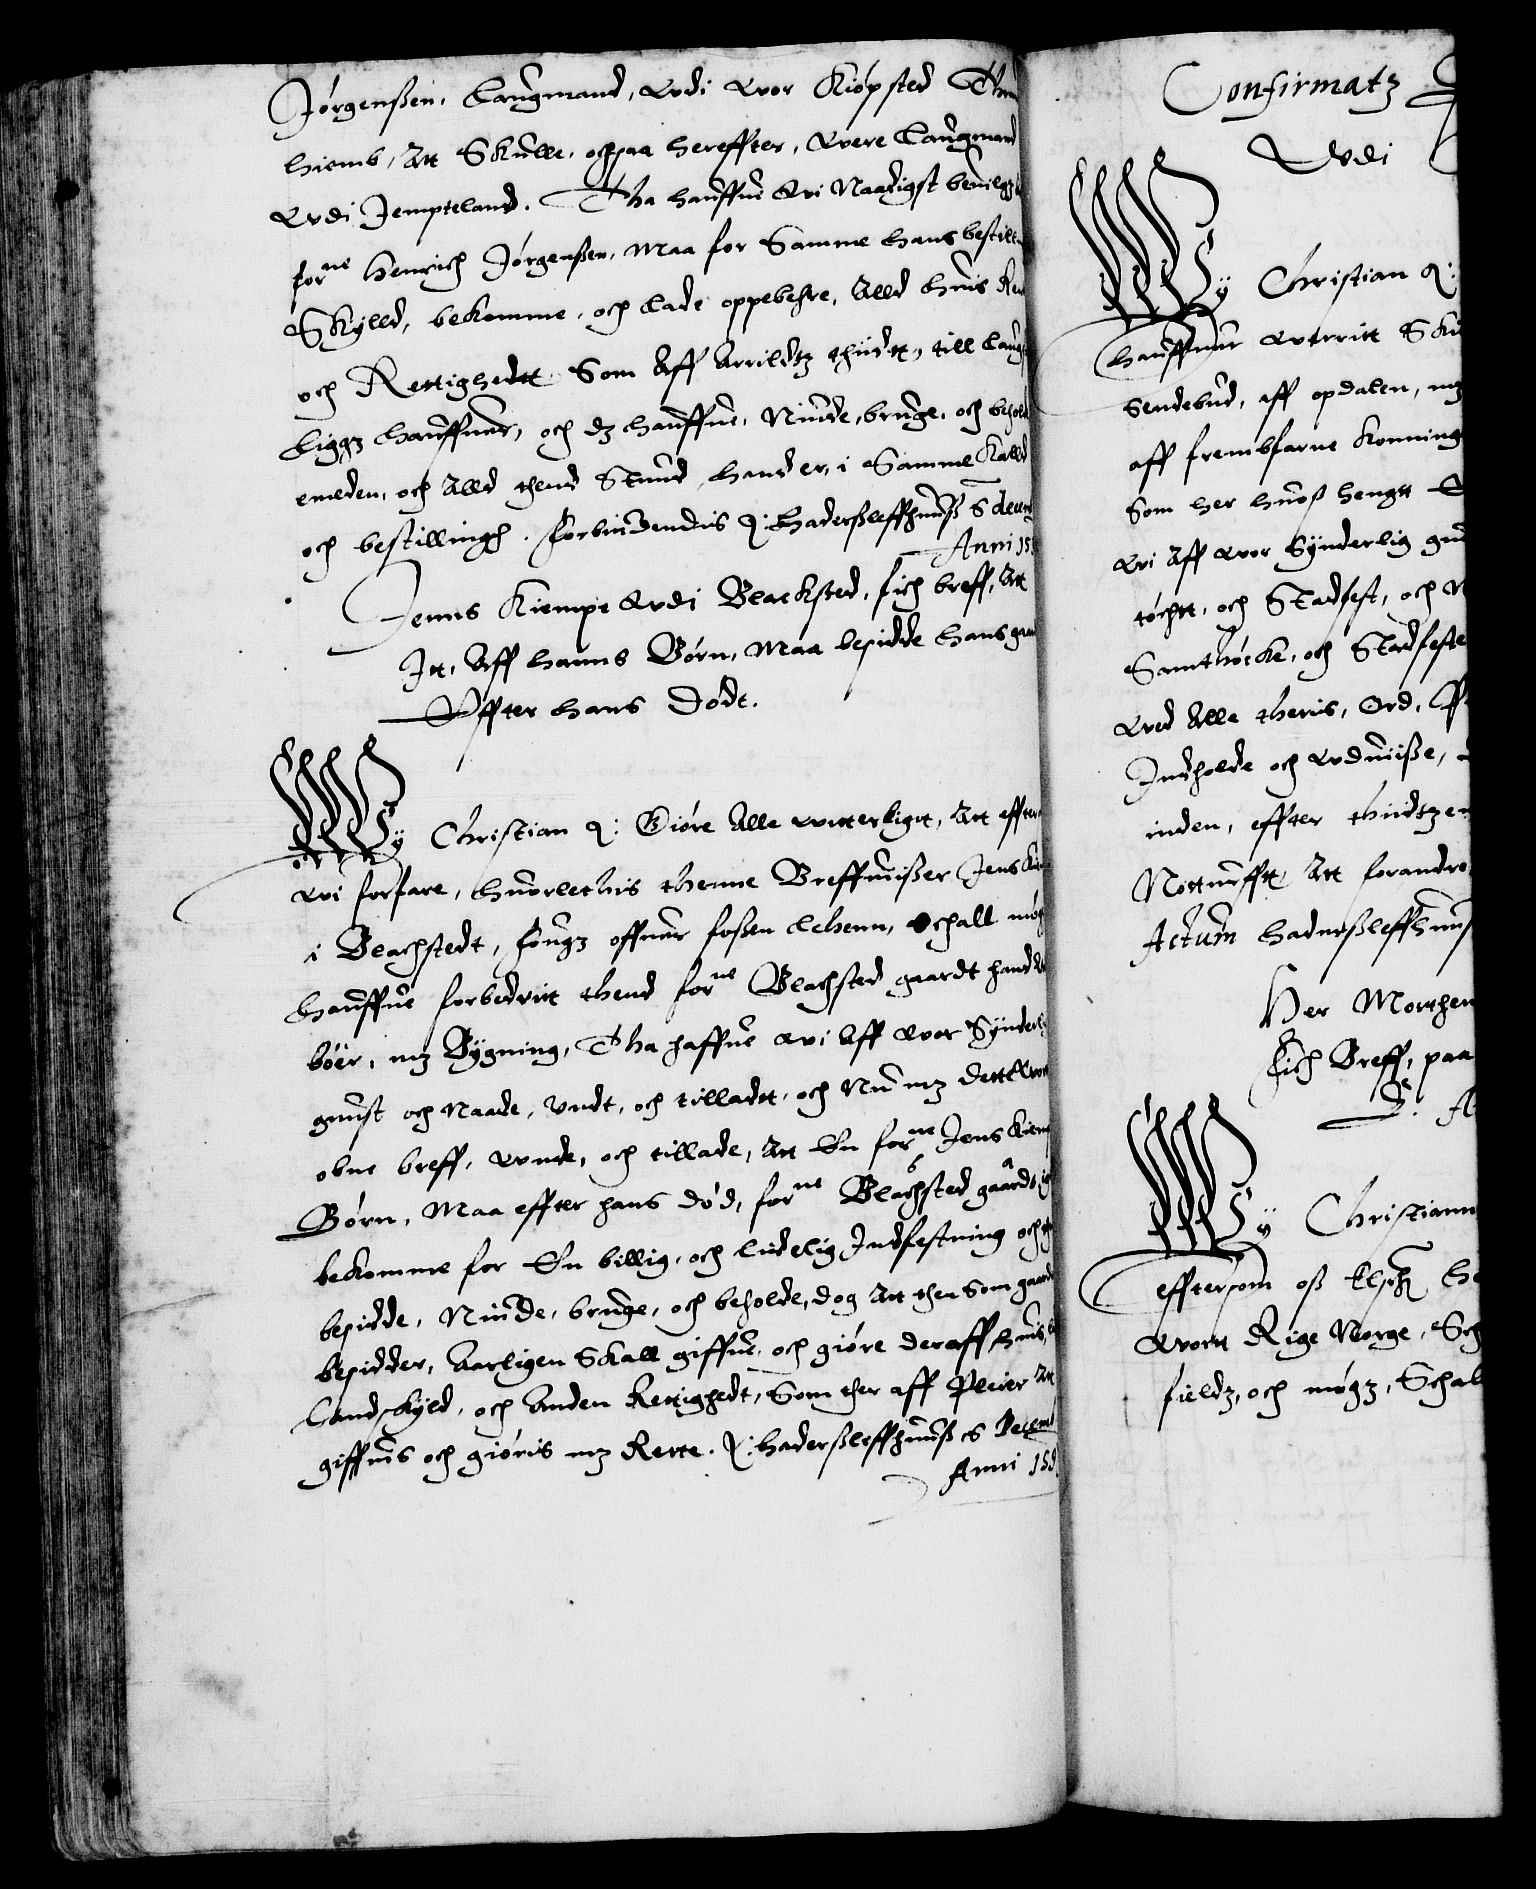 Jørgenßen, Laugmand, vdi vor Kiøpsted Thron
hiemb, Att Skulle, ochsaa hereffter, Were Laugmand
Vdi Jempteland. Tha hauffue Wi Naadigst beuilgz
for^ne Henrich Jørgenßen, Maa for Samme hans bestill
Skÿlld, bekomme, och Lade oppebehre, Alld huis Ren
och Rettighedtt Som Aff Arrildtz thiidtt, till Laug
Liggz hauffuer, och dz hauffue, Niude, bruge, och behold
emeden, och Alld thend Stund, hand er, i Samme Kalld
och bestillingh. Forbiudendis &: Haderßleffhuuß 5 decem
Anni 15
Jenns Kiempe Vdi Blacksted, fich breff, Att
It, Aff hanns Børn, Maa besidde hans gaar
Effter hans Dødt.
Wÿ Christian &: Giøre Alle witterligt, Att effter
Wi forfare, huorledhis thenne Breffuißer Jens Kie
i Blachstedt, sougz offuer foßen Lehenn, Schall møg
hauffue forbedritt thend for^ne Blachsted gaardt hand
bøer, mz Bÿgning, Tha haffue Wi Aff Wor Sÿnderli
gunst och Naade, Undt, och tilladt, och Nu mz dette Wort
obne breff, Wnde, och tillade, Att En for^ne Jens Kiem
Børn, Maa effter hans død, for^ne Blachsted gaardt
bekomme for En billig, och Liidelig Indfestning och
besidde, Niude, bruge, och beholde, dog Att then Som gaard
besidder, Aarligen Skall giffue, och giøre deraff huis
Landskÿld, och Anden Rettighedt, Som ther aff Pleier Att
giffuis och giøris mz Rette. &: Haderßleffhuuß 5 Decemb
Anni 158
Confirmatz
Vdi
Wÿ Christian &:
hauffuer Werritt Sku
Sendebud, aff opdalen, mz
aff frembfarne Konning
Som her huoß hengtt
Wi Aff Wor Sÿnderlig gu
tøchtt, och Stadfest, och
Samthÿcke, och Stadfeste
Wed Alle theris, Ord,
Indholde och Vduiiße,
inden, effter thiidtzen
Notturfftt Att forandre
Actum Haderßleffhuuß
Her Morthen
fich Breff, paa
Wÿ Christiann
efftersom oß
Wortt Rige Norge,
fieldz, och møgz, Schal